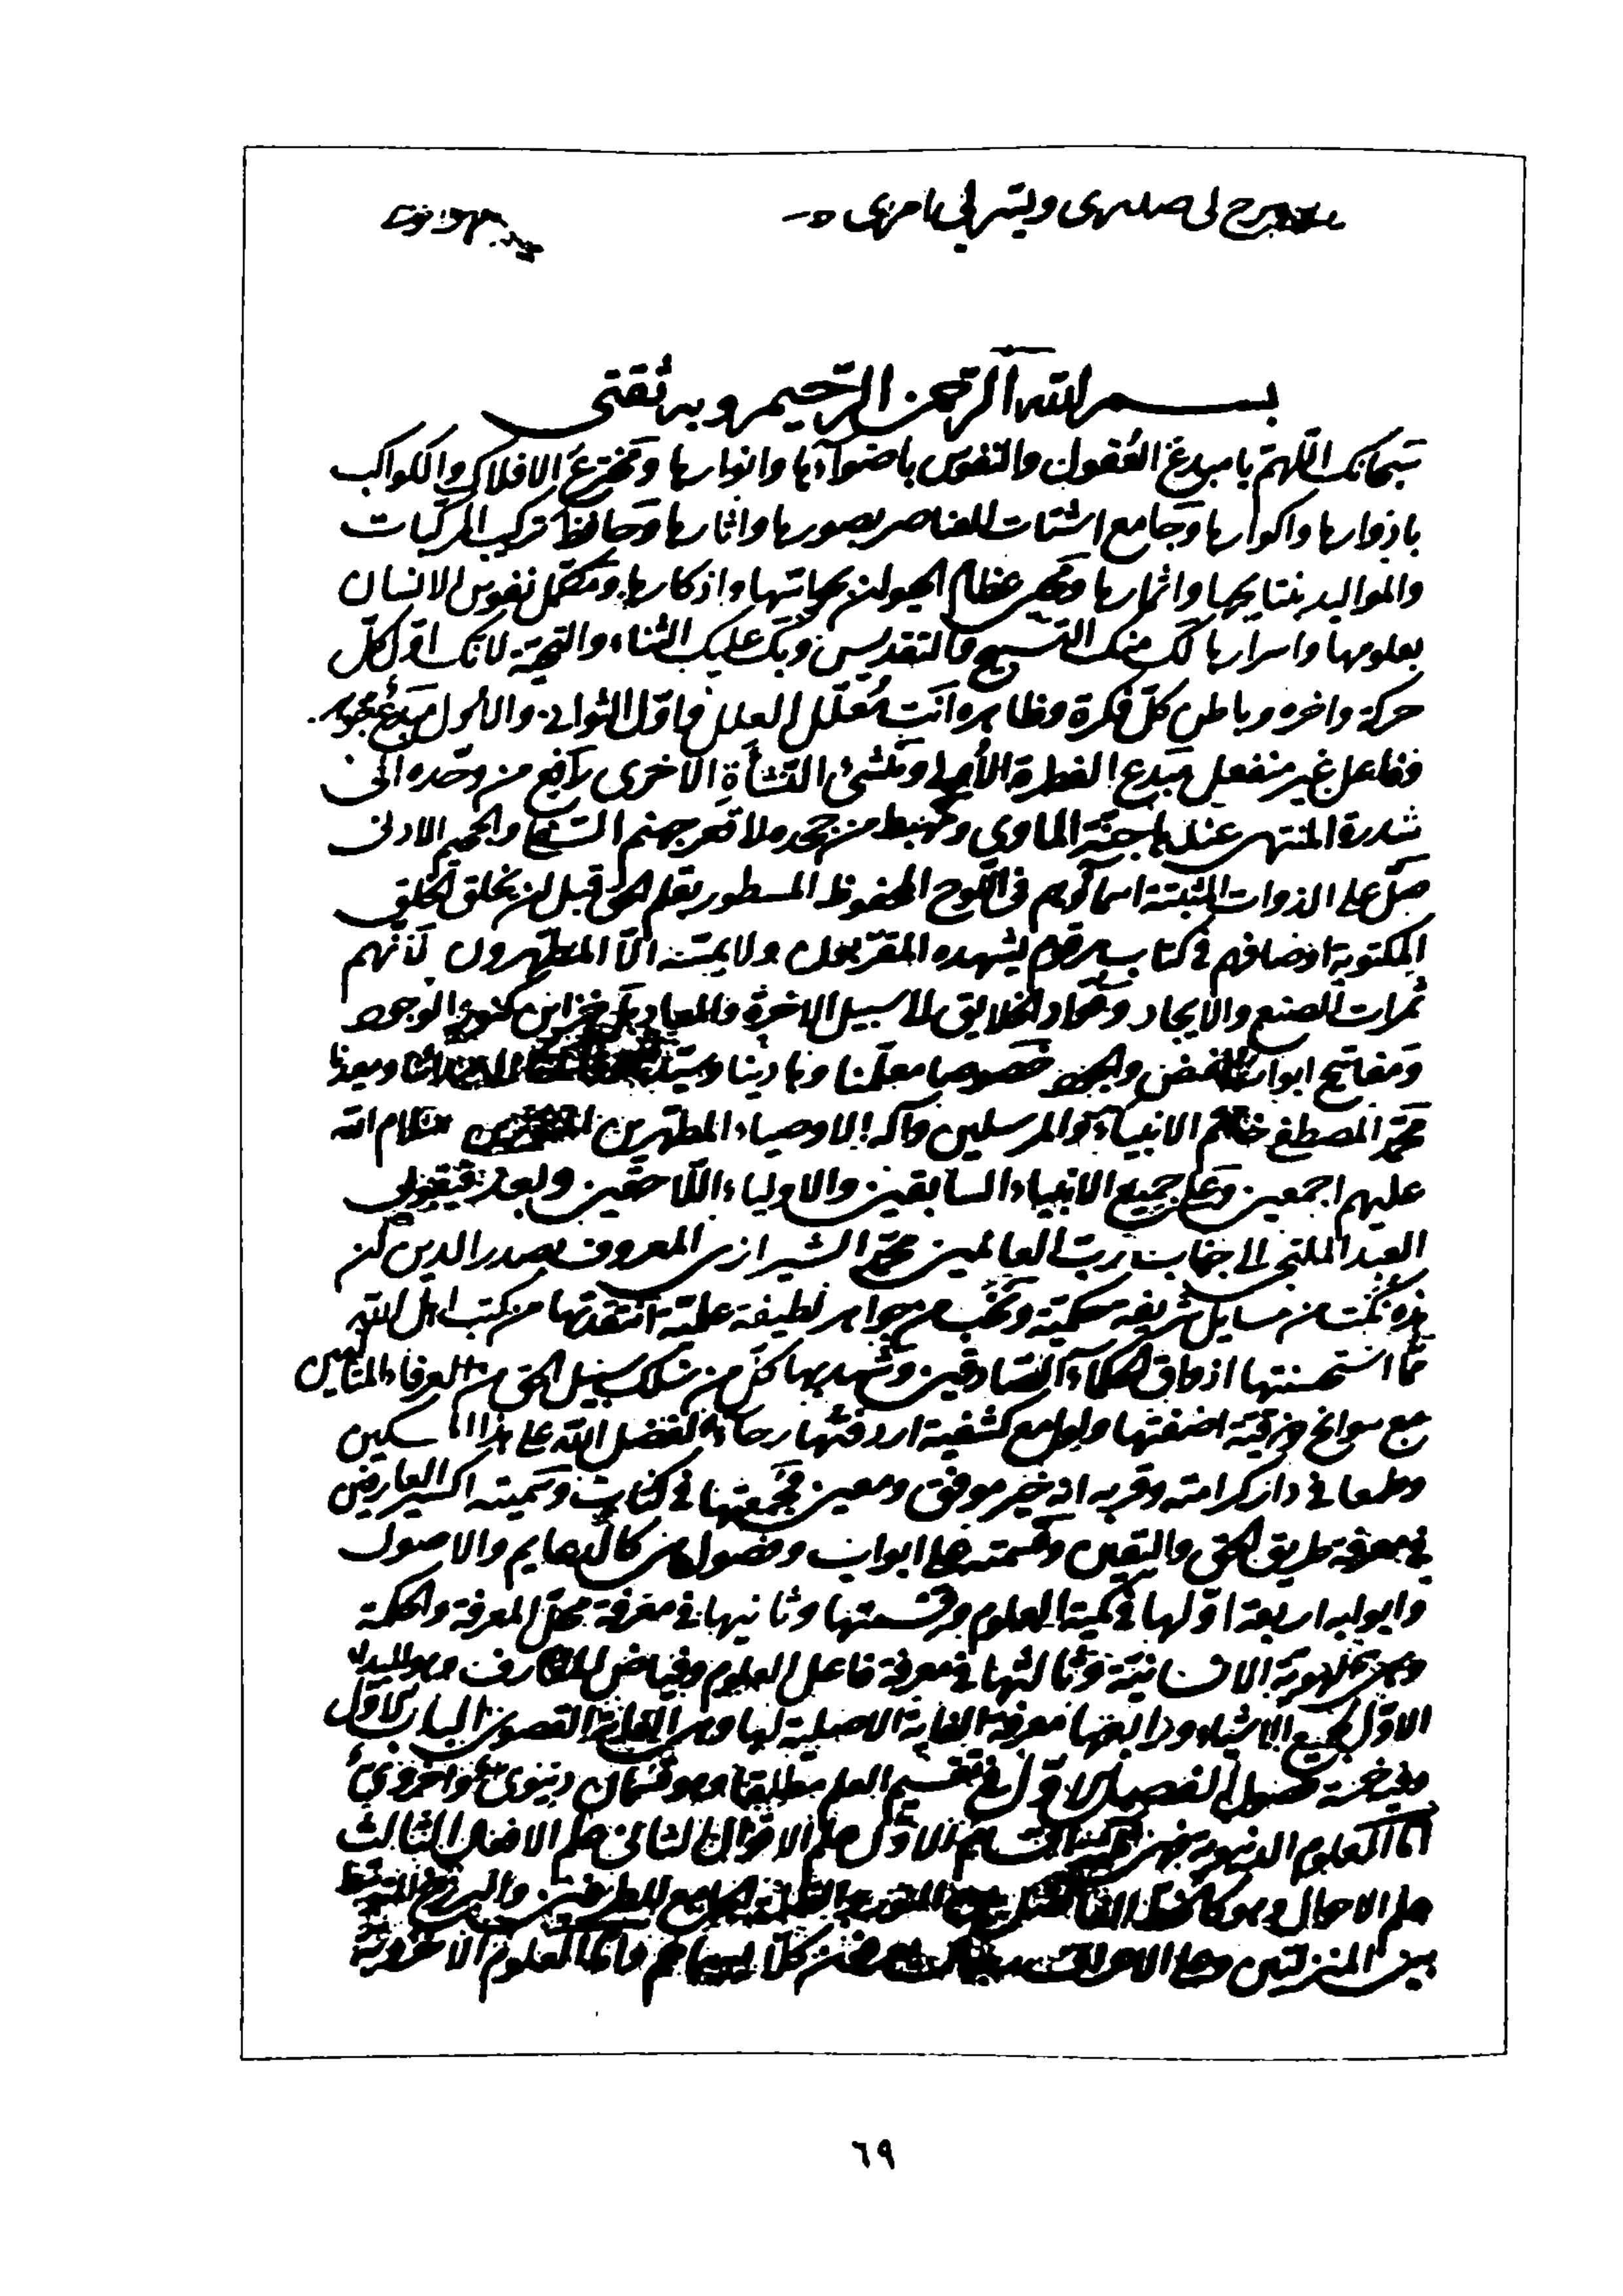 اشرح لى صدرى ويسر لي امرى
بسم الله الرحمن الرحيم وبه ثقتى
سبحانك اللهم يا مبدع العقول والنفوس باضوآءها وانوارها ومخترع الافلاك والكواكب
بادوارها واكوارها وجامع اشتات العناصر بصورها واثارها وحافظ تركيب المركبات
والمواليد بنتايجها واثمارها ومحيى عظام الحيوان بحياتها واذكارها ومكمل نفوس الانسان
بعلومها واسرارها لك منك التسبيح والتقديس وبك عليك الثناء والتحية لانك اول كل
حركة واخره وباطن كل فكرة وظاهره انت معلل العلل فاول الثواني والاول مبدع
وفاعل غير منفعل مبدع الفطرة الأولى ومنشئ النشأة الاخرى رافع من وحده الى
سدرة المنتهى عندها جنة الماوى ومهبط من جحده لا قعر جهنم السفلى والجحيم الادنى
صل على الذوات المثبتة اسماؤهم فى اللوح المحفوظ المسطور بقلم الحق قبل ان يخلق الخلق
المكتوبة اوصافهم فى كتاب مرقوم يشهده المقربون ولا يمسه الا المطهرون لأنهم
ثمرات الصنع والايجاد وهداة الخلايق لاسبيل الاخرة والمعاد بل خزاين كنوز الوجود
ومفاتيح ابواب الفيض والجود خصوصا معلمنا وهادينا وسيد
محمد المصطفى خاتم الانبياء والمرسلين وآله الاوصياء المطهرين سلام الله
عليهم اجمعين وعلى جميع الانبياء السابقين والاولياء اللاحقين وبعد فيقول
العبد الملتجى الى جناب رب العالمين محمد الشيرازى المعروف بصدر الدين ان
هذه نكت من مسايل شريفة حكمية ونخب من جواهر لطيفة علمية انتقدتها من كتب اهل الله
مما استحسنتها اذواق الحكماء الصادقين وشهد بها كل من سلك سبيل الحق من العرفاء المتالهين
مع سوانح ذوقية اضفتها ولوامع كشفية اردفتها رجاء لفضل الله على هذا المسكين
وطمعا في دار كرامته وقربه انه خير موفق ومعين فجمعتها في كتاب وسميته اكسير العارفين
في معرفة طريق الحق واليقين وقسمته على ابواب وفصول هى كالدعايم والاصول
وابوابه اربعة اولها في كمية العلوم وقسمتها وثانيها في معرفة محل المعرفة والحكمة
وهى الهوية الانسانية وثالثها في معرفة فاعل العلوم وفياض المعارف وهو المبدا
الاول لجميع الاشياء ورابعها معرفة الغاية الاصلية لها وهى الغاية القصوى الباب الاول
وفيه خمسة فصول الفصل الاول في تقسيم العلم مطلقا وهو قسمان دنيوى واخروى
اما العلوم الدنيوية فهى ثلثة اقسام الاول علم الاقوال الثانى علم الافعال الثالث
علم الاحوال وهو الجامع للطرفين والبرزخ المتوسط
بين المنزلتين واما العلوم الاخروية
٦٩